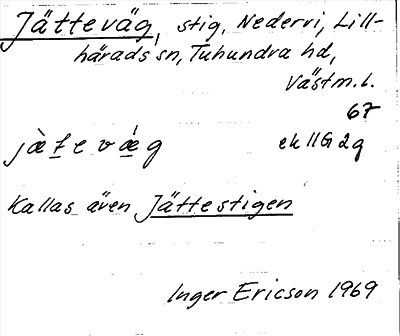 Jätteväg, stig, Nedervi, Lill-
härads sn, Tuhundra hd,
Västm. l.
67
jæ̀tevǽg ek 11G 2g
Kallas även Jättestigen
Inger Ericson 1969